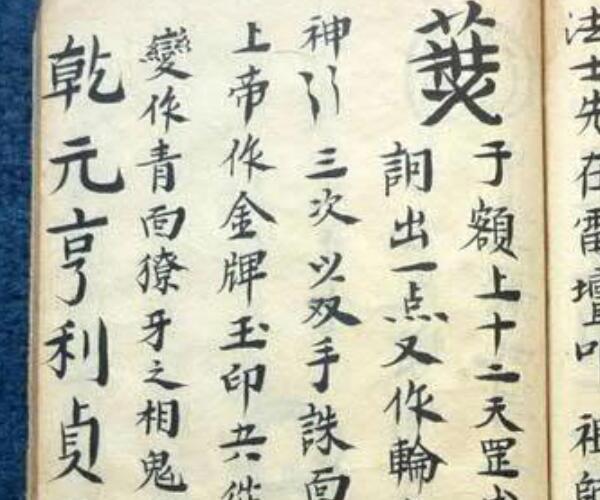 法士先在雷壇叩祖師
于額上十二天罡
詞出一点又作輪
神引三次以双手誅面
上帝作金牌玉印共
變作青面獠牙之相鬼
乾元亨利貞